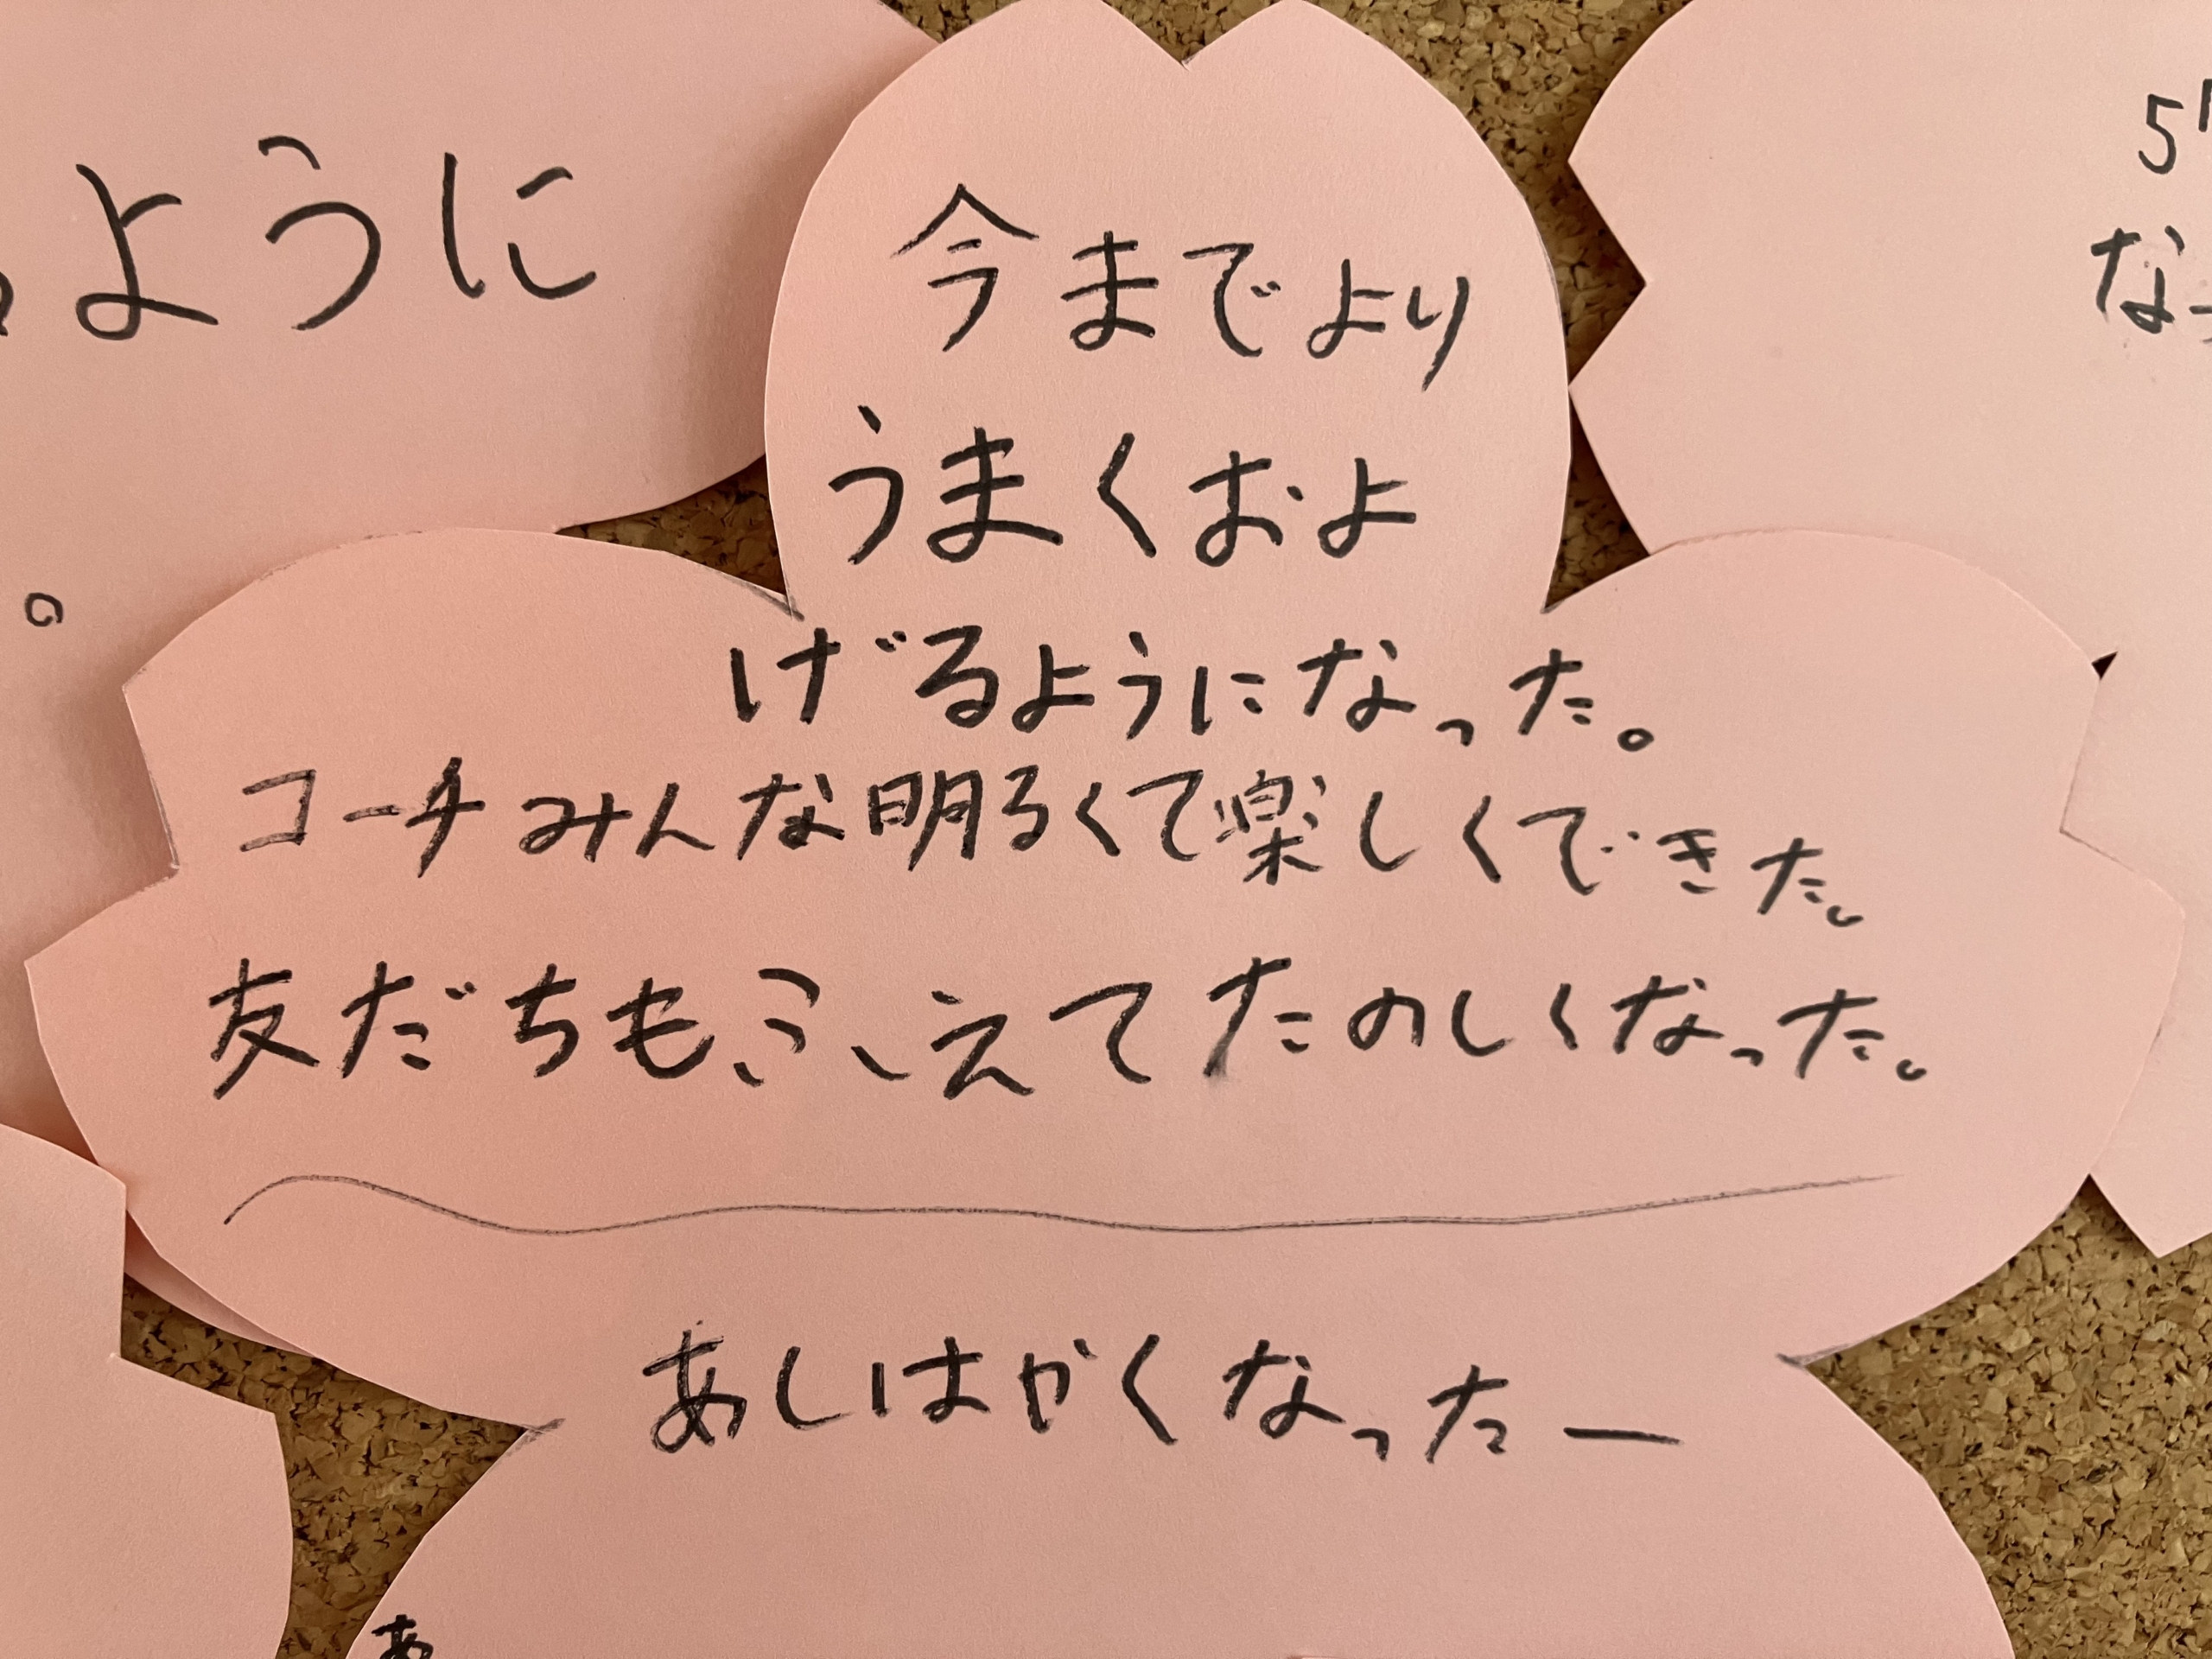 ように
。
今までより
うまくおよ
げるようになった。
コーチみんな明るくて楽しくできた。
友だちもふえてたのしくなった。
あしはかくなったー
5
な
あ